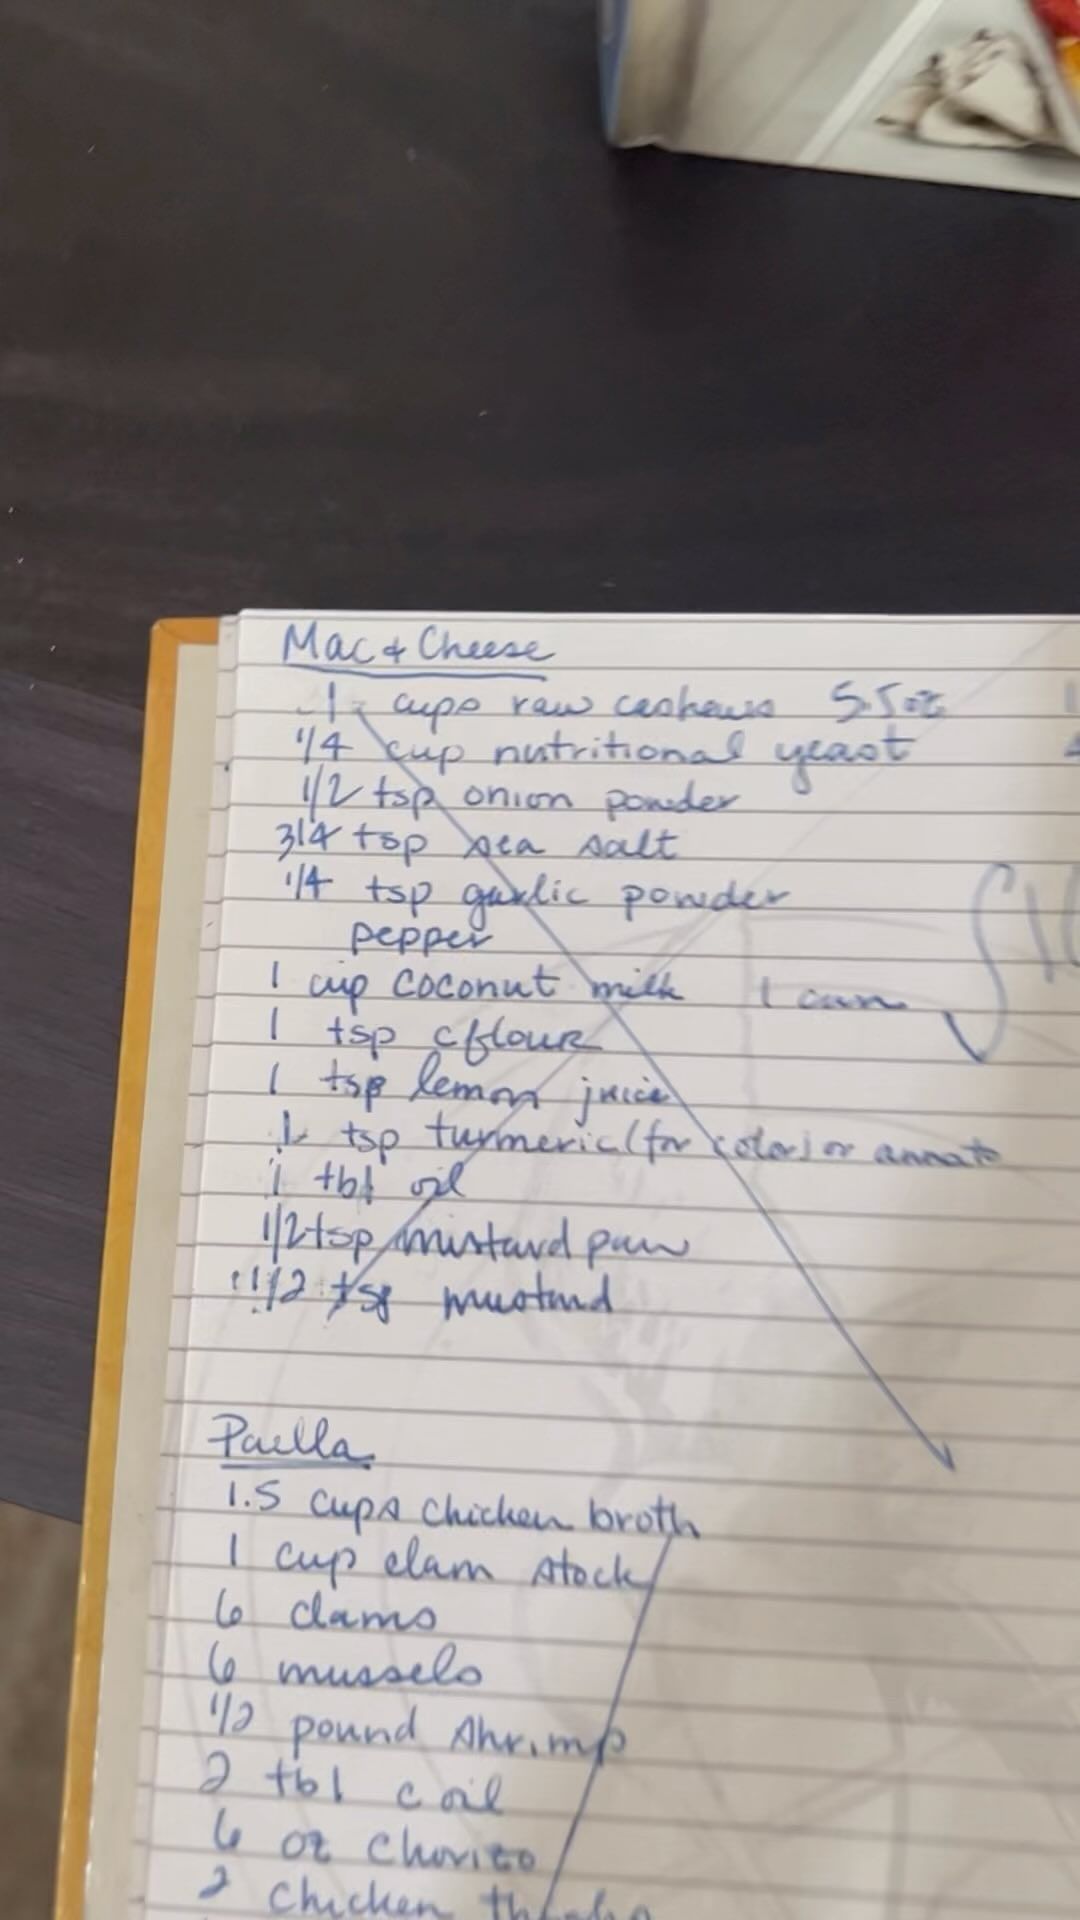 Mac & Cheese
1 cups raw cashews 5.5oz
1/4 cup nutritional yeast
1/2 tsp onion powder
3/4 tsp sea salt
1/4 tsp garlic powder
pepper
1 cup coconut milk 1 can
1 tsp cflour
1 tsp lemon juice
1 tsp turmeric (for color) or annato
1 tbl oil
1/2 tsp mustard pow
1 1/2 tsp mustard
Paella
1.5 cups chicken broth
1 cup clam stock
6 clams
6 mussels
1/2 pound shrimp
2 tbl c oil
6 oz chorizo
2 chicken thighs